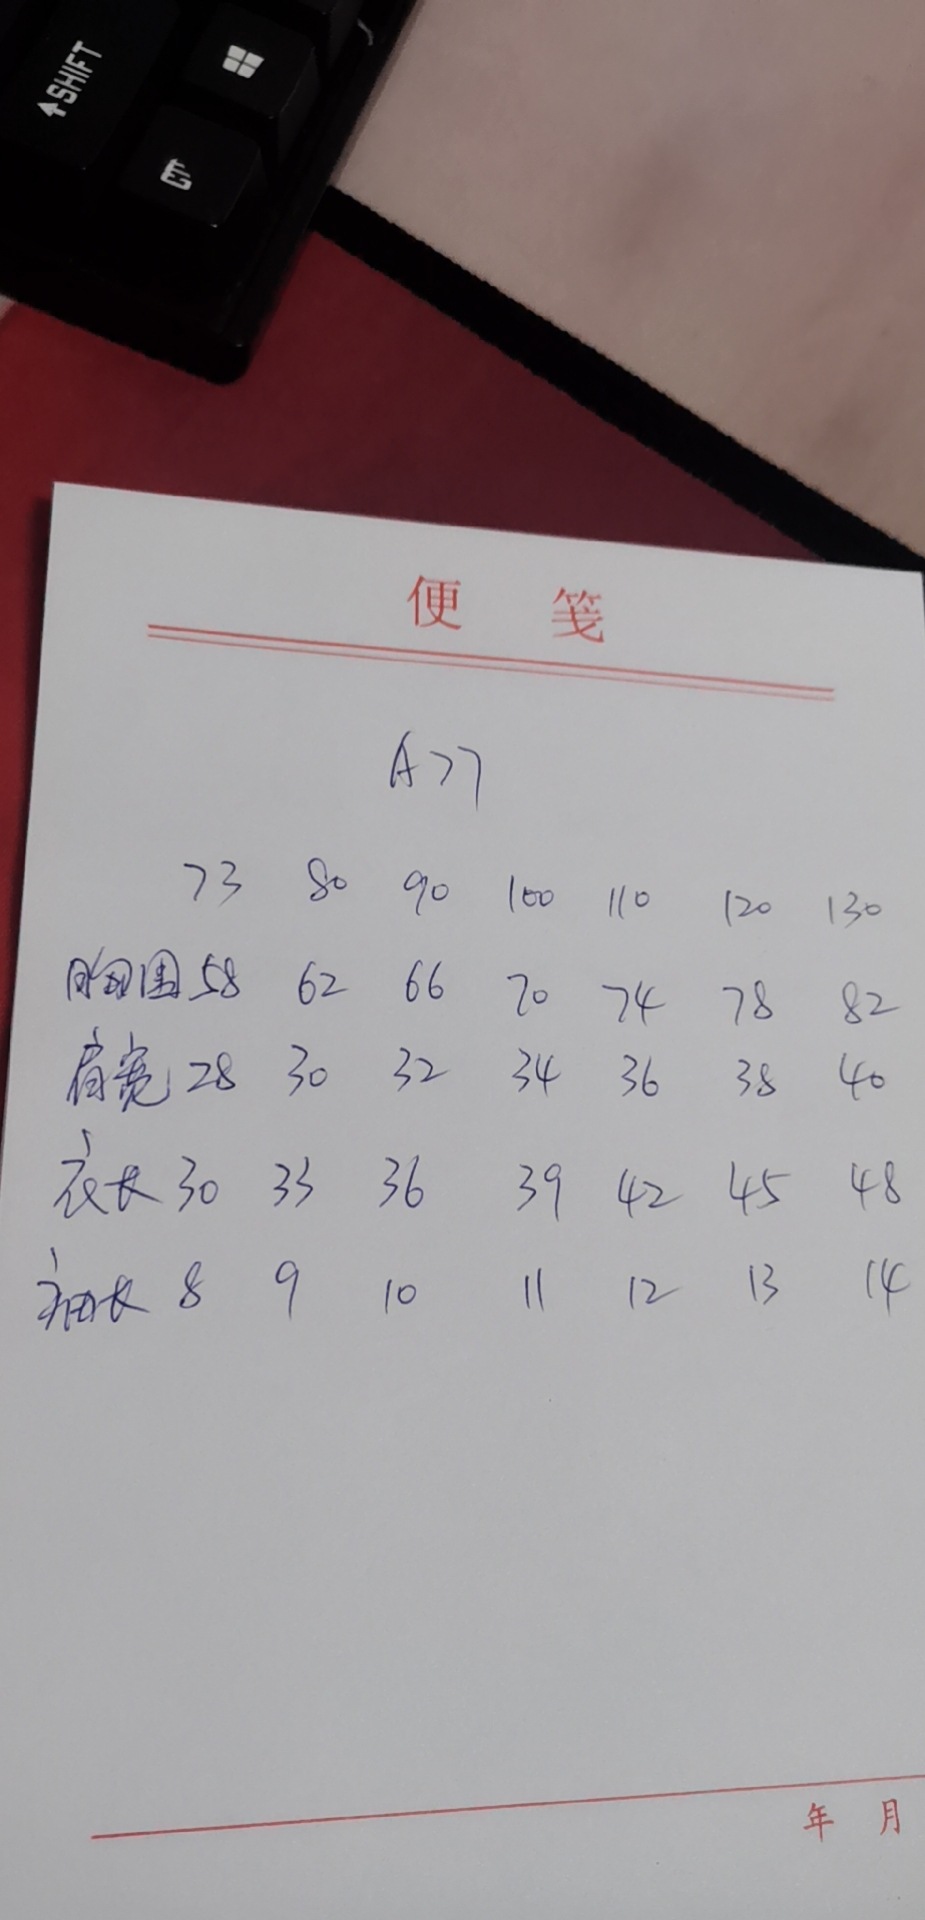 SHIFT
便 笺
A77
73 80 90 100 110 120 130
胸围 58 62 66 70 74 78 82
肩宽 28 30 32 34 36 38 40
衣长 30 33 36 39 42 45 48
袖长 8 9 10 11 12 13 14
年 月